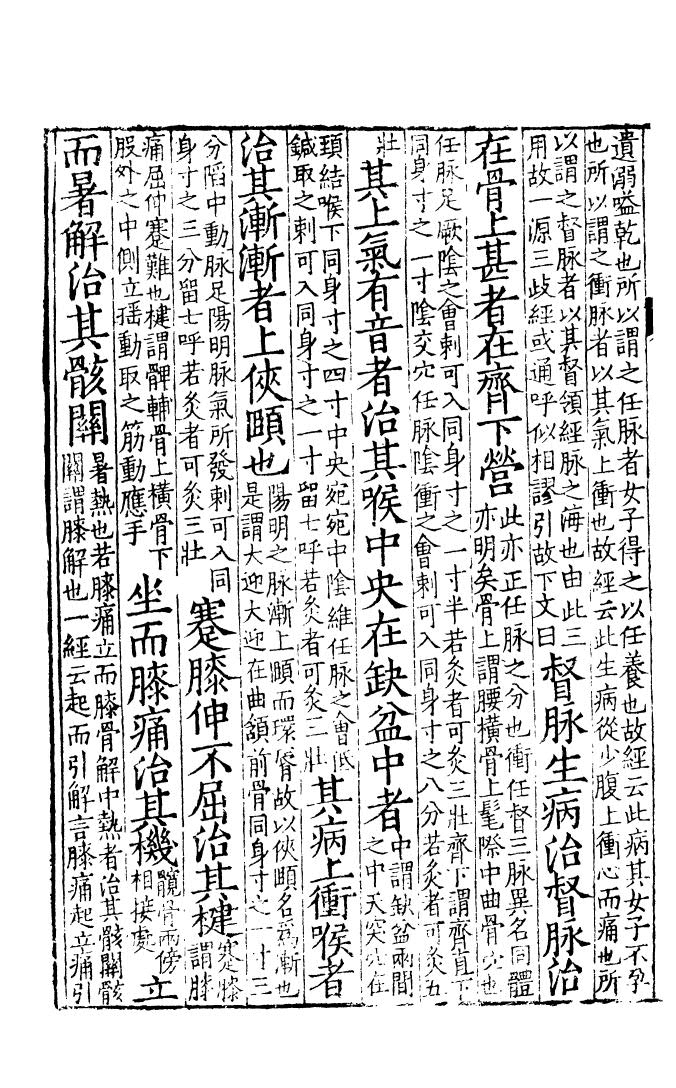 遺溺嗌乾也所以謂之任脉者女子得之以任養也故經云此病其女子不孕
也所以謂之衝脉者以其氣上衝也故經云此生病從少腹上衝心而痛也所
以謂之督脉者以其督領經脉之海也由此三
用故一源三歧經或通呼似相謬引故下文曰
督脉生病治督脉治
在骨上甚者在齊下營
此亦正任脉之分也衝任督三脉異名同體
亦明矣骨上謂腰橫骨上髦際中曲骨穴也
任脉足厥陰之會刺可入同身寸之一寸半若灸者可灸三壯齊下謂齊直下
同身寸之一寸陰交穴任脉陰衝之會刺可入同身寸之八分若灸者可灸五
壯
其上氣有音者治其喉中央在缺盆中者
中謂缺盆兩間
之中天突穴在
頚結喉下同身寸之四寸中央宛宛中陰維任脉之會低
鍼取之刺可入同身寸之一寸留七呼若灸者可灸三壯
其病上衝喉者
治其漸漸者上俠頤也
陽明之脉漸上頤而環脣故以俠頤名爲漸也
是謂大迎大迎在曲頷前骨同身寸之一寸三
分䧟中動脉足陽明脉氣所發刺可入同
身寸之三分留七呼若灸者可灸三壯
蹇膝伸不屈治其楗
蹇膝
謂膝
痛屈伸蹇難也楗謂髀輔骨上橫骨下
股外之中側立搖動取之筋動應手
坐而膝痛治其機
髖骨兩傍
相接處
立
而暑解治其骸關
暑熱也若膝痛立而膝骨解中熱者治其骸關骸
關謂膝解也一經云起而引解言膝痛起立痛引